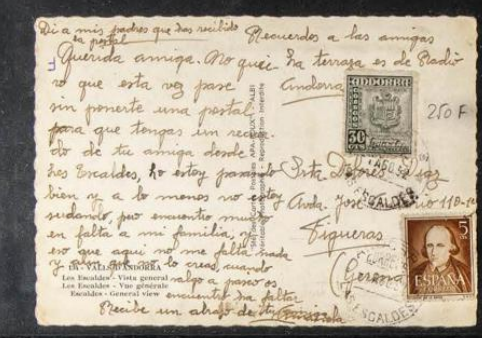 Di a mis padres que has recibido
la postal
Recuerdos a las amigas
Querida amiga. No quie-
ro que esta vez pase
sin ponerte una postal
para que tengas un recuer-
do de tu amiga desde
les Escaldes, lo estoy pasando
bien y a lo menos no estoy
sudando, pero encuentro mucho
en falta a mi familia, y
eso que aqui no me falta nada
y aun que no lo creas, cuando
salgo a paseo os
encuentro ha faltar
Recibe un abrazo de tu amiga
La terraza es de Radio
Andorra
ANDORRA
CORREOS
30
250 F
Srta Dolores Diaz
Avda. José Antonio 110
Figueras
(Gerona)
ESCALDES
5
CTS
ESPAÑA
ESCALDES
VALLS D'ANDORRA
Les Escaldes - Vista general
Les Escaldes - Vue générale
Escaldes - General view
Reproduction Interdite